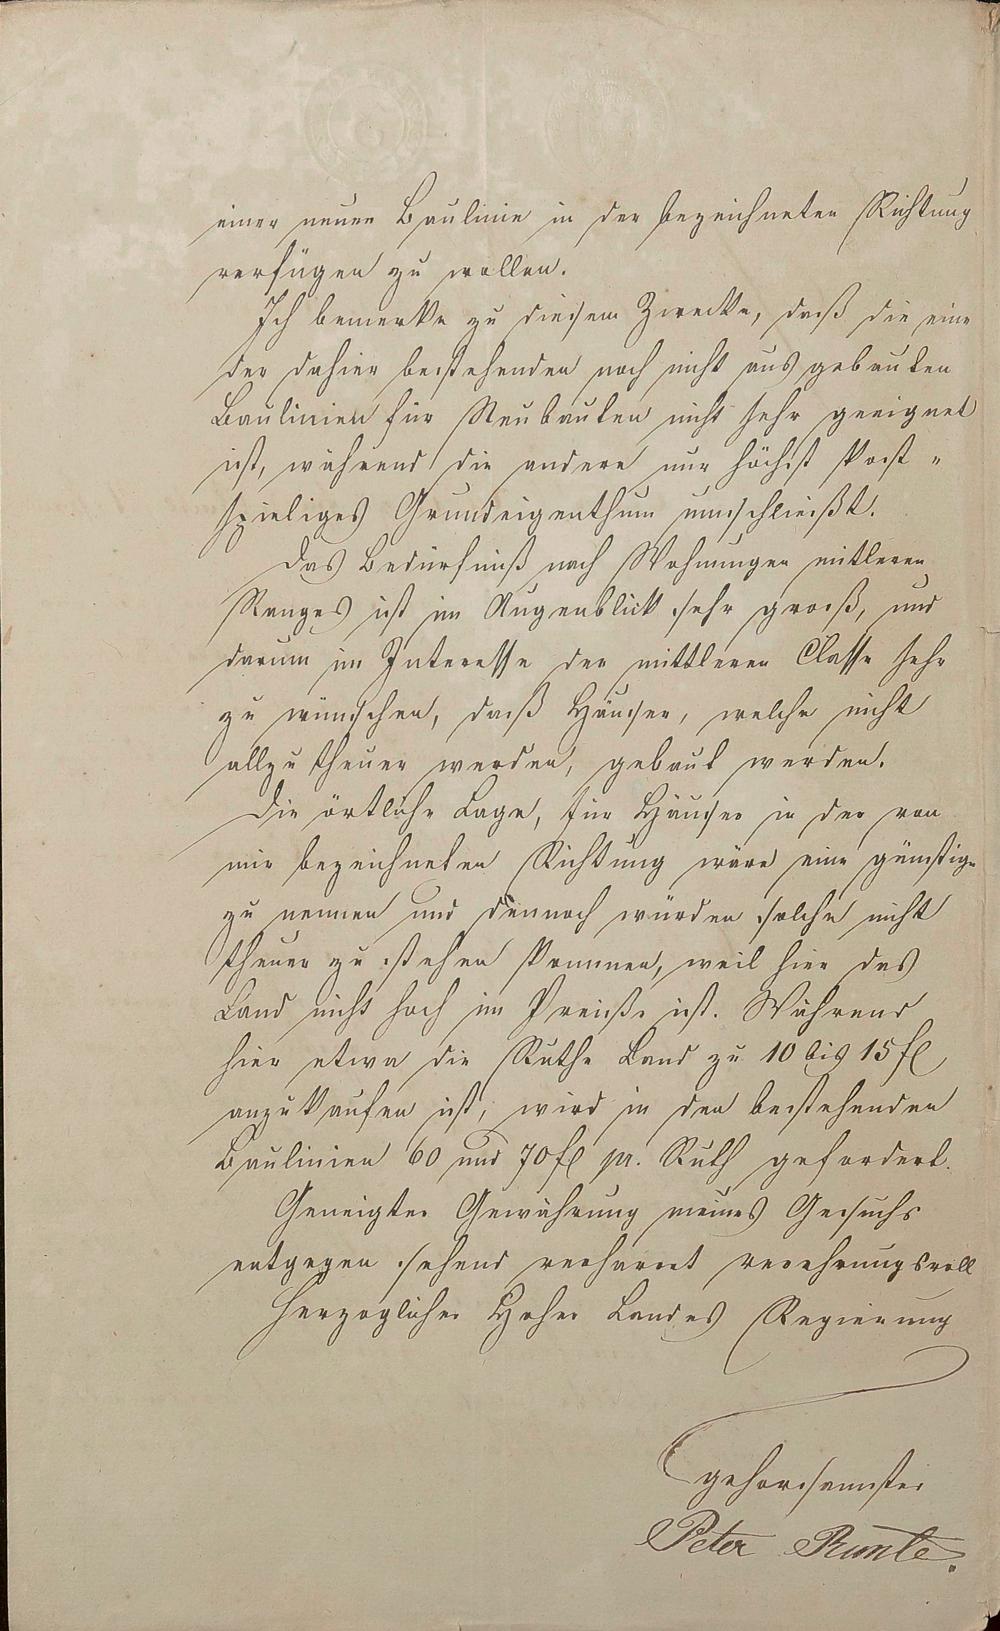 einer neuen Baulinie in der bezeichneten Richtung
verfügen zu wollen.
Ich bemerke zu diesem Zwecke, daß die eine
der dahier bestehenden noch nicht aus gebauten
Baulinien für Neubauten nicht sehr geeignet
ist, während die andere nur höchst kost-
spieliges Grundeigenthum umschließt.
Das Bedürfniß nach Wohnungen mitleren
Ranges ist im Augenblick sehr groß, und
darum im Interesse der mittleren Classe sehr
zu wünschen, daß Häuser, welche nicht
allzu theuer werden, gebaut werden.
Die örtliche Lage, für Häuser in der von
mir bezeichneten Richtung wäre eine günstige
zu nennen und dennoch würden solche nicht
theuer zu stehen kommen, weil hier das
Land nicht hoch im Preiße ist. Während
hier etwa die Ruthe Land zu 10 bis 15 fl
anzukaufen ist, wird in den bestehenden
Baulinien 60 und 70 fl pr. Ruth gefordert.
Geneigter Gewährung meines Gesuchs
entgegen sehend verharret verehrungsvoll
Herzoglicher Hoher Landes Regierung
gehorsamster
Peter Runte.